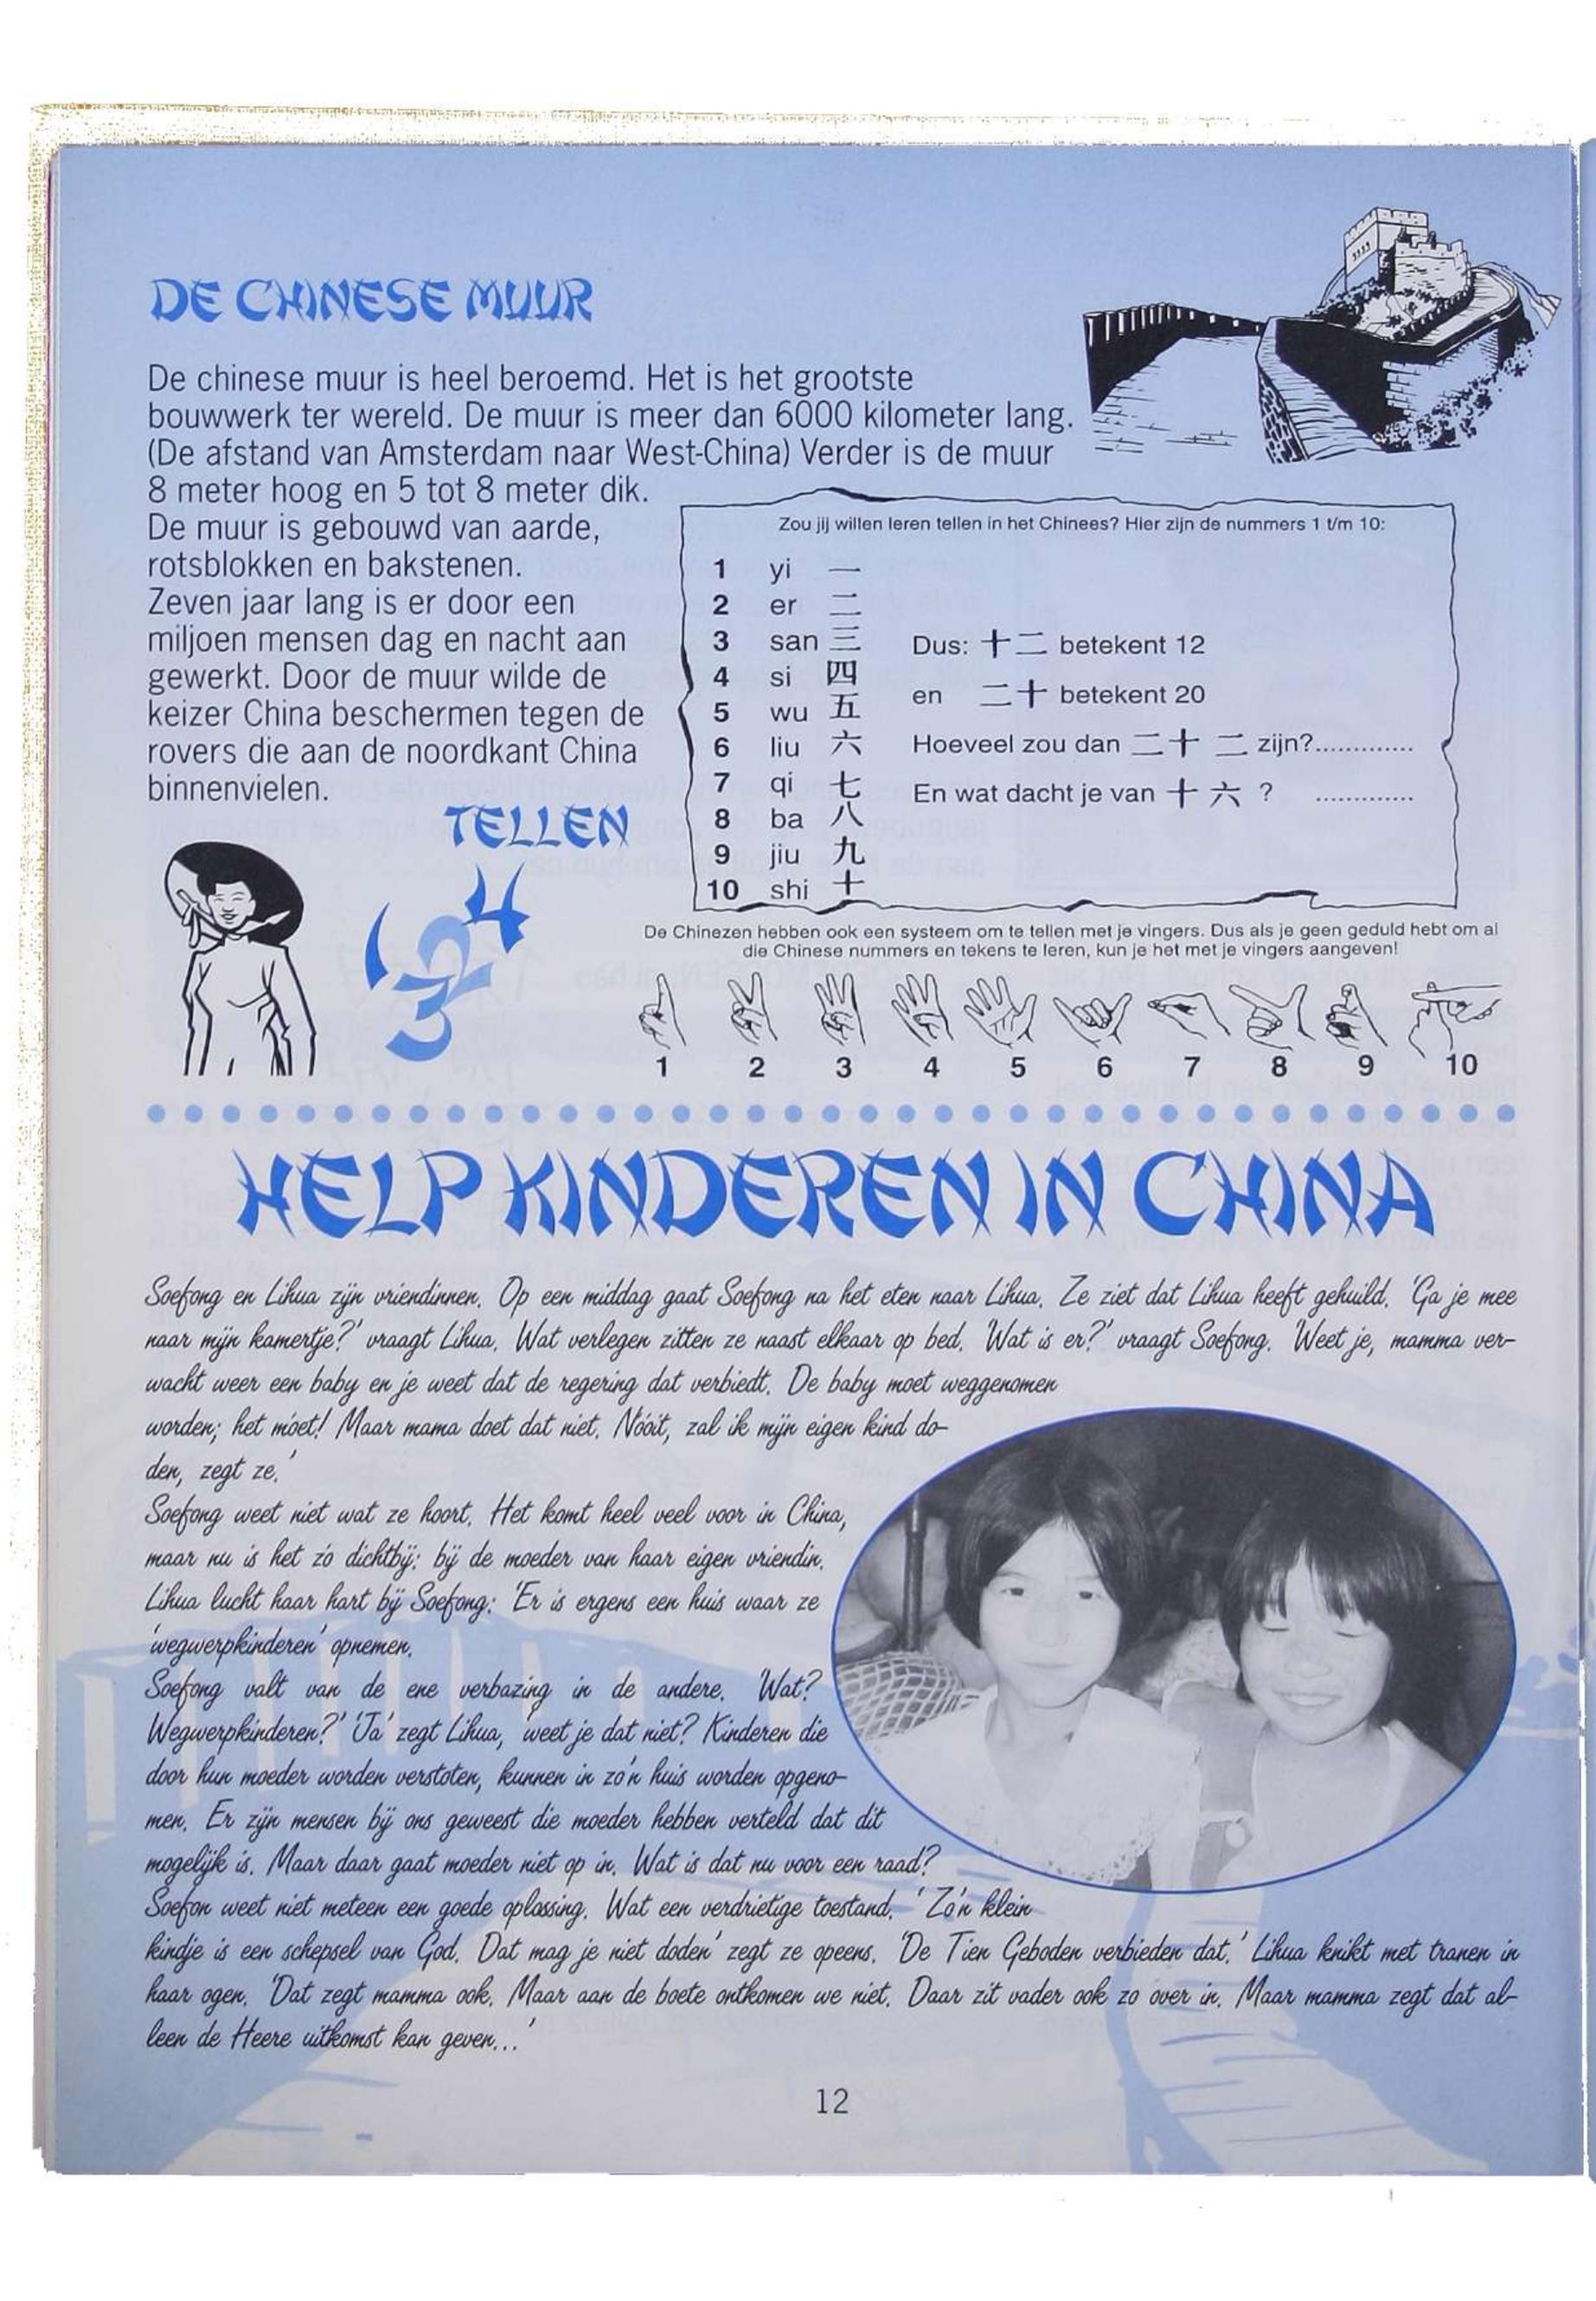 DE CHINESE MUUR
De chinese muur is heel beroemd. Het is het grootste
bouwwerk ter wereld. De muur is meer dan 6000 kilometer lang.
(De afstand van Amsterdam naar West-China) Verder is de muur
8 meter hoog en 5 tot 8 meter dik.
De muur is gebouwd van aarde,
rotsblokken en bakstenen.
Zeven jaar lang is er door een
miljoen mensen dag en nacht aan
gewerkt. Door de muur wilde de
keizer China beschermen tegen de
rovers die aan de noordkant China
binnenvielen.
TELLEN
1 2 3 4
Zou jij willen leren tellen in het Chinees? Hier zijn de nummers 1 t/m 10:
1 yi 一
2 er 二
3 san 三
4 si 四
5 wu 五
6 liu 六
7 qi 七
8 ba 八
9 jiu 九
10 shi 十
Dus: 十二 betekent 12
en 二十 betekent 20
Hoeveel zou dan 二十 二 zijn?.............
En wat dacht je van 十六 ? .............
De Chinezen hebben ook een systeem om te tellen met je vingers. Dus als je geen geduld hebt om al
die Chinese nummers en tekens te leren, kun je het met je vingers aangeven!
1 2 3 4 5 6 7 8 9 10
HELP KINDEREN IN CHINA
Soefong en Lihua zijn vriendinnen. Op een middag gaat Soefong na het eten naar Lihua. Ze ziet dat Lihua heeft gehuild. 'Ga je mee
naar mijn kamertje?' vraagt Lihua. Wat verlegen zitten ze naast elkaar op bed. 'Wat is er?' vraagt Soefong. 'Weet je, mamma ver-
wacht weer een baby en je weet dat de regering dat verbiedt. De baby moet weggenomen
worden; het móet! Maar mama doet dat niet. Nóóit, zal ik mijn eigen kind do-
den, zegt ze.'
Soefong weet niet wat ze hoort. Het komt heel veel voor in China,
maar nu is het zó dichtbij: bij de moeder van haar eigen vriendin.
Lihua lucht haar hart bij Soefong: 'Er is ergens een huis waar ze
'wegwerpkinderen' opnemen.
Soefong valt van de ene verbazing in de andere. 'Wat?
Wegwerpkinderen?' 'Ja' zegt Lihua, 'weet je dat niet? Kinderen die
door hun moeder worden verstoten, kunnen in zo'n huis worden opgeno-
men. Er zijn mensen bij ons geweest die moeder hebben verteld dat dit
mogelijk is. Maar daar gaat moeder niet op in. Wat is dat nu voor een raad?
Soefon weet niet meteen een goede oplossing. Wat een verdrietige toestand. 'Zo'n klein
kindje is een schepsel van God. Dat mag je niet doden' zegt ze opeens. 'De Tien Geboden verbieden dat.' Lihua knikt met tranen in
haar ogen. 'Dat zegt mamma ook. Maar aan de boete ontkomen we niet. Daar zit vader ook zo over in. Maar mamma zegt dat al-
leen de Heere uitkomst kan geven...'
12